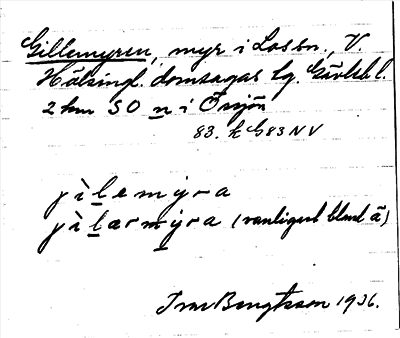 Gillemyren, myr i Los sn., V.
Hälsingl. domsagas tg. Gävleb l.
2 km SO n i Örsjön
83. h G83NV
jìlemýra
jìlærmýra (vanligast bland ä)
Ivar Bengtsson 1936.